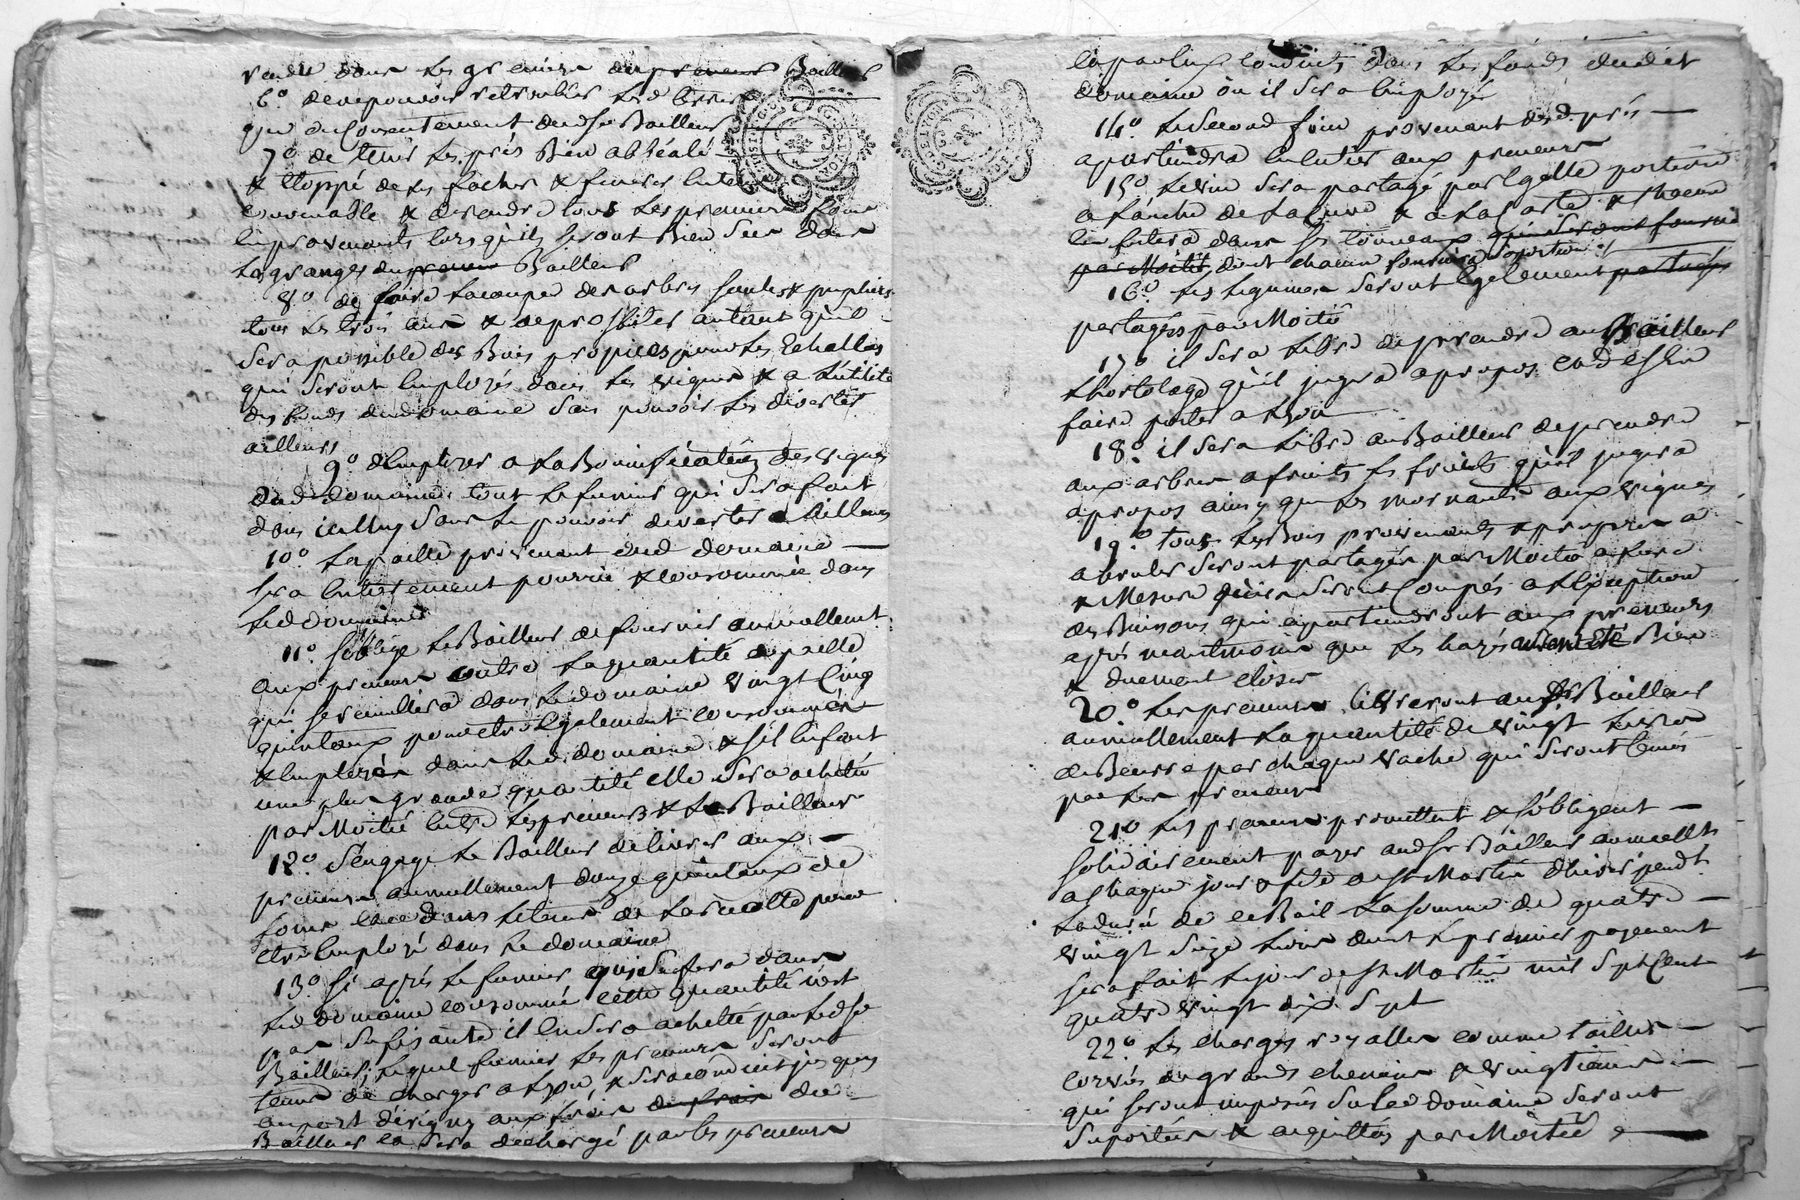 rendu dans les greniers du preneur Bailleur
6.º de ne pouvoir retroubler lesd. terres
que du Consentement dudsr. Bailleur
7.º de tenir les prés Bien abréalé
& Etoppé de les faucher & fener en tems
convenable & de rendre tous les premiers foins
en provenants lorsqu'ils seront Bien secs dans
les granges du preneur Bailleur
8.º de faire la coupe des arbres saules & peupliers
tous les trois ans & de profiter autant qu'il
sera possible des Bois propices pour les Echallas
qui seront Employés dans les vignes & a l'utilité
des fonds dud. domaine sans pouvoir les divertir
ailleurs
9.º d'Employer a la Bonnification des vignes
dud. domaine tout le fumier qui sera fait
dans icelluy sans le pouvoir divertir Ailleurs
10.º la paille provenant dud domaine
sera Entierement pourrie & consommée dans
led domaine
11.º s'oblige le Bailleur de fournir annuellement
aux preneurs outre la quantité de paille
qui se cueillera dans le domaine vingt Cinq
quintaux pour etre Egalement consommés
& Employés dans led. domaine & s'il En faut
une plus grande quantité elle sera achetée
par Moitié Entre les preneurs & le Bailleur
12.º S'engage le Bailleur de livrer aux
preneurs annuellement douze quintaux de
foin dans le tems de la recolte pour
etre Employé dans le domaine
13.º Si après le fumier qui se fera dans
led domaine consommé cette quantité n'est
pas sufisante il En sera acheté par ledsr
Bailleur, lequel fumier les preneurs seront
tenus de charger a Lyon, & sera conduit jusques
au port d'irigny aux frais du frais du
Bailleur la sera dechargé par les preneurs
et par Eux conduits Dans les fonds dudit
domaine où il sera Employé
14.º le second foin provenant desd. prés
apartiendra En Entier aux preneurs
15.º le vin sera partagé par Egalle portion
a l'anche de la Cuve & a la & Chacun
En futera dans ses tonneaux qui seront fournis
par Moitié, dont chacun fournira sa portion
16.º les legumes seront Egalement partagés
partagés par Moitié
17.º il sera libre de prendre au Bailleur
l'hortolage qu'il jugera a propos, en
faire porter a Lyon
18.º il sera libre au Bailleur de prendre
aux arbres a fruits les fruits qu'il jugera
a propos ainsy que les aux vignes
19.º tous les Bois provenants & propres a
a bruler seront partagés par Moitié a fur
& Mesure qu'ils seront Coupés a l'Exception
des Buissons qui apartiendront aux preneurs
après neantmoins que les hayes auront été Bien
& duement closes
20.º les preneurs livreront audsr Bailleur
annuellement la quantité de vingt livres
de Beurre par chaque vache qui seront tenües
par les preneurs
21.º les preneurs promettent & s'obligent
solidairement payer audsr Bailleur annuellt.
a chaque jour & fête de St Martin d'hiver pendt.
la durée de ce Bail la somme de quatre
vingt seize livres dont le premier payement
sera fait le jour de St Martin mil Sept Cent
quatre vingt dix Sept
22.º les charges royalles comme tailles
corvées de grands chemins & vingtiemes
qui seront imposés sur led domaine seront
suportées & acquittées par Moitié